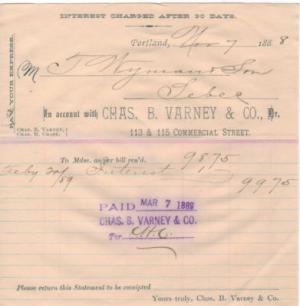 INTEREST CHARGED AFTER 30 DAYS.
PAY YOUR EXPRESS.
Portland, Nov 7 1888
M T Wyman & Son
Sebec
In account with CHAS. B. VARNEY & CO., Dr.
CHAS. B. VARNEY,
113 & 115 COMMERCIAL STREET.
To Mdse. as per bill ren'd. 98,75
Feby 20/89 Interest
99 75
PAID MAR 7 1889
CHAS. B. VARNEY & CO.
Per
Please return this Statement to be receipted
Yours truly, Chas. B. Varney & Co.